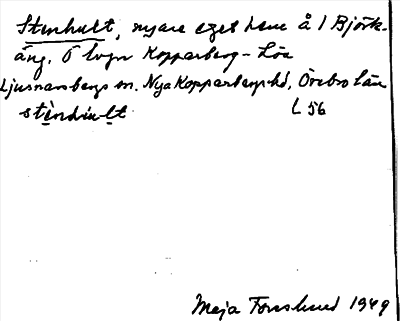 Stenhult, nyare eget hem å 1 Björk-
äng. Ö lvgn Kopparberg - Löa
Ljusnarsbergs sn. Nya Kopparbergs hd, Örebro län
L 56
Maja Forslund 1949